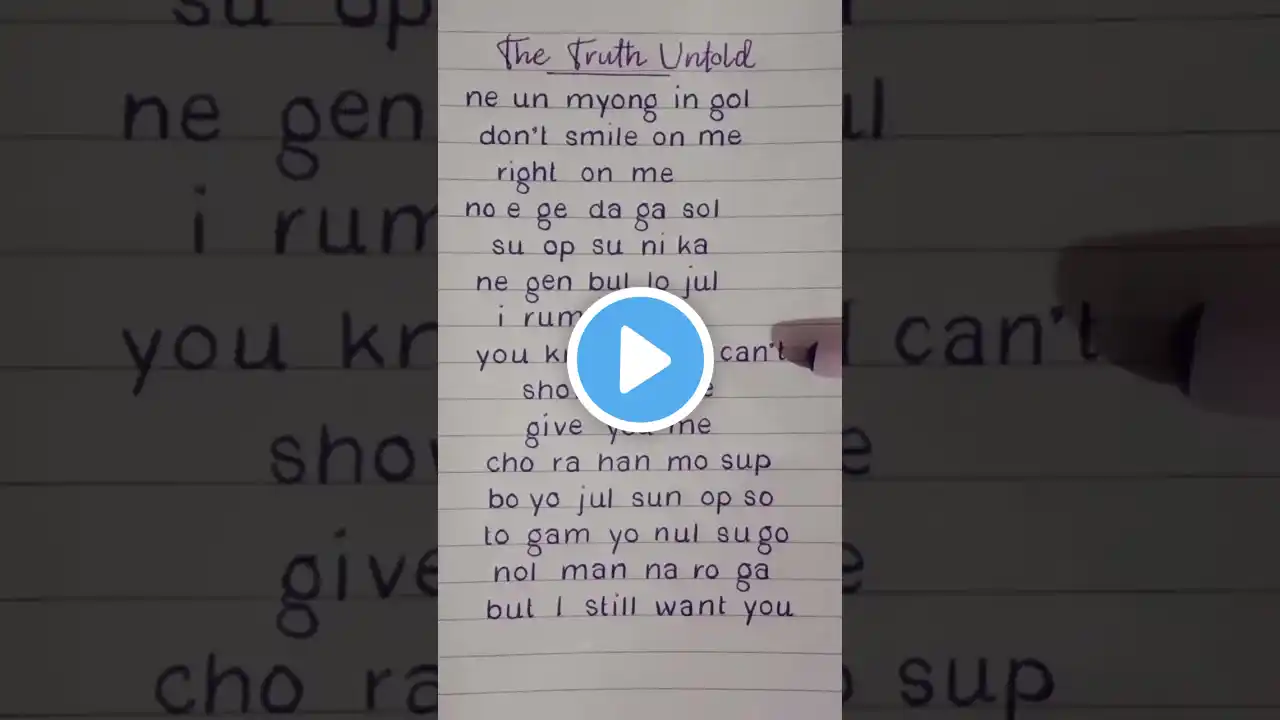 The Truth Untold
ne un myong in gol
don't smile on me
right on me
no e ge da ga sol
su op su ni ka
ne gen bul lo jul
i rum
you can't
give you me
cho ra han mo sup
bo yo jul sun op so
to gam yo nul su go
nol man na ro ga
but I still want you